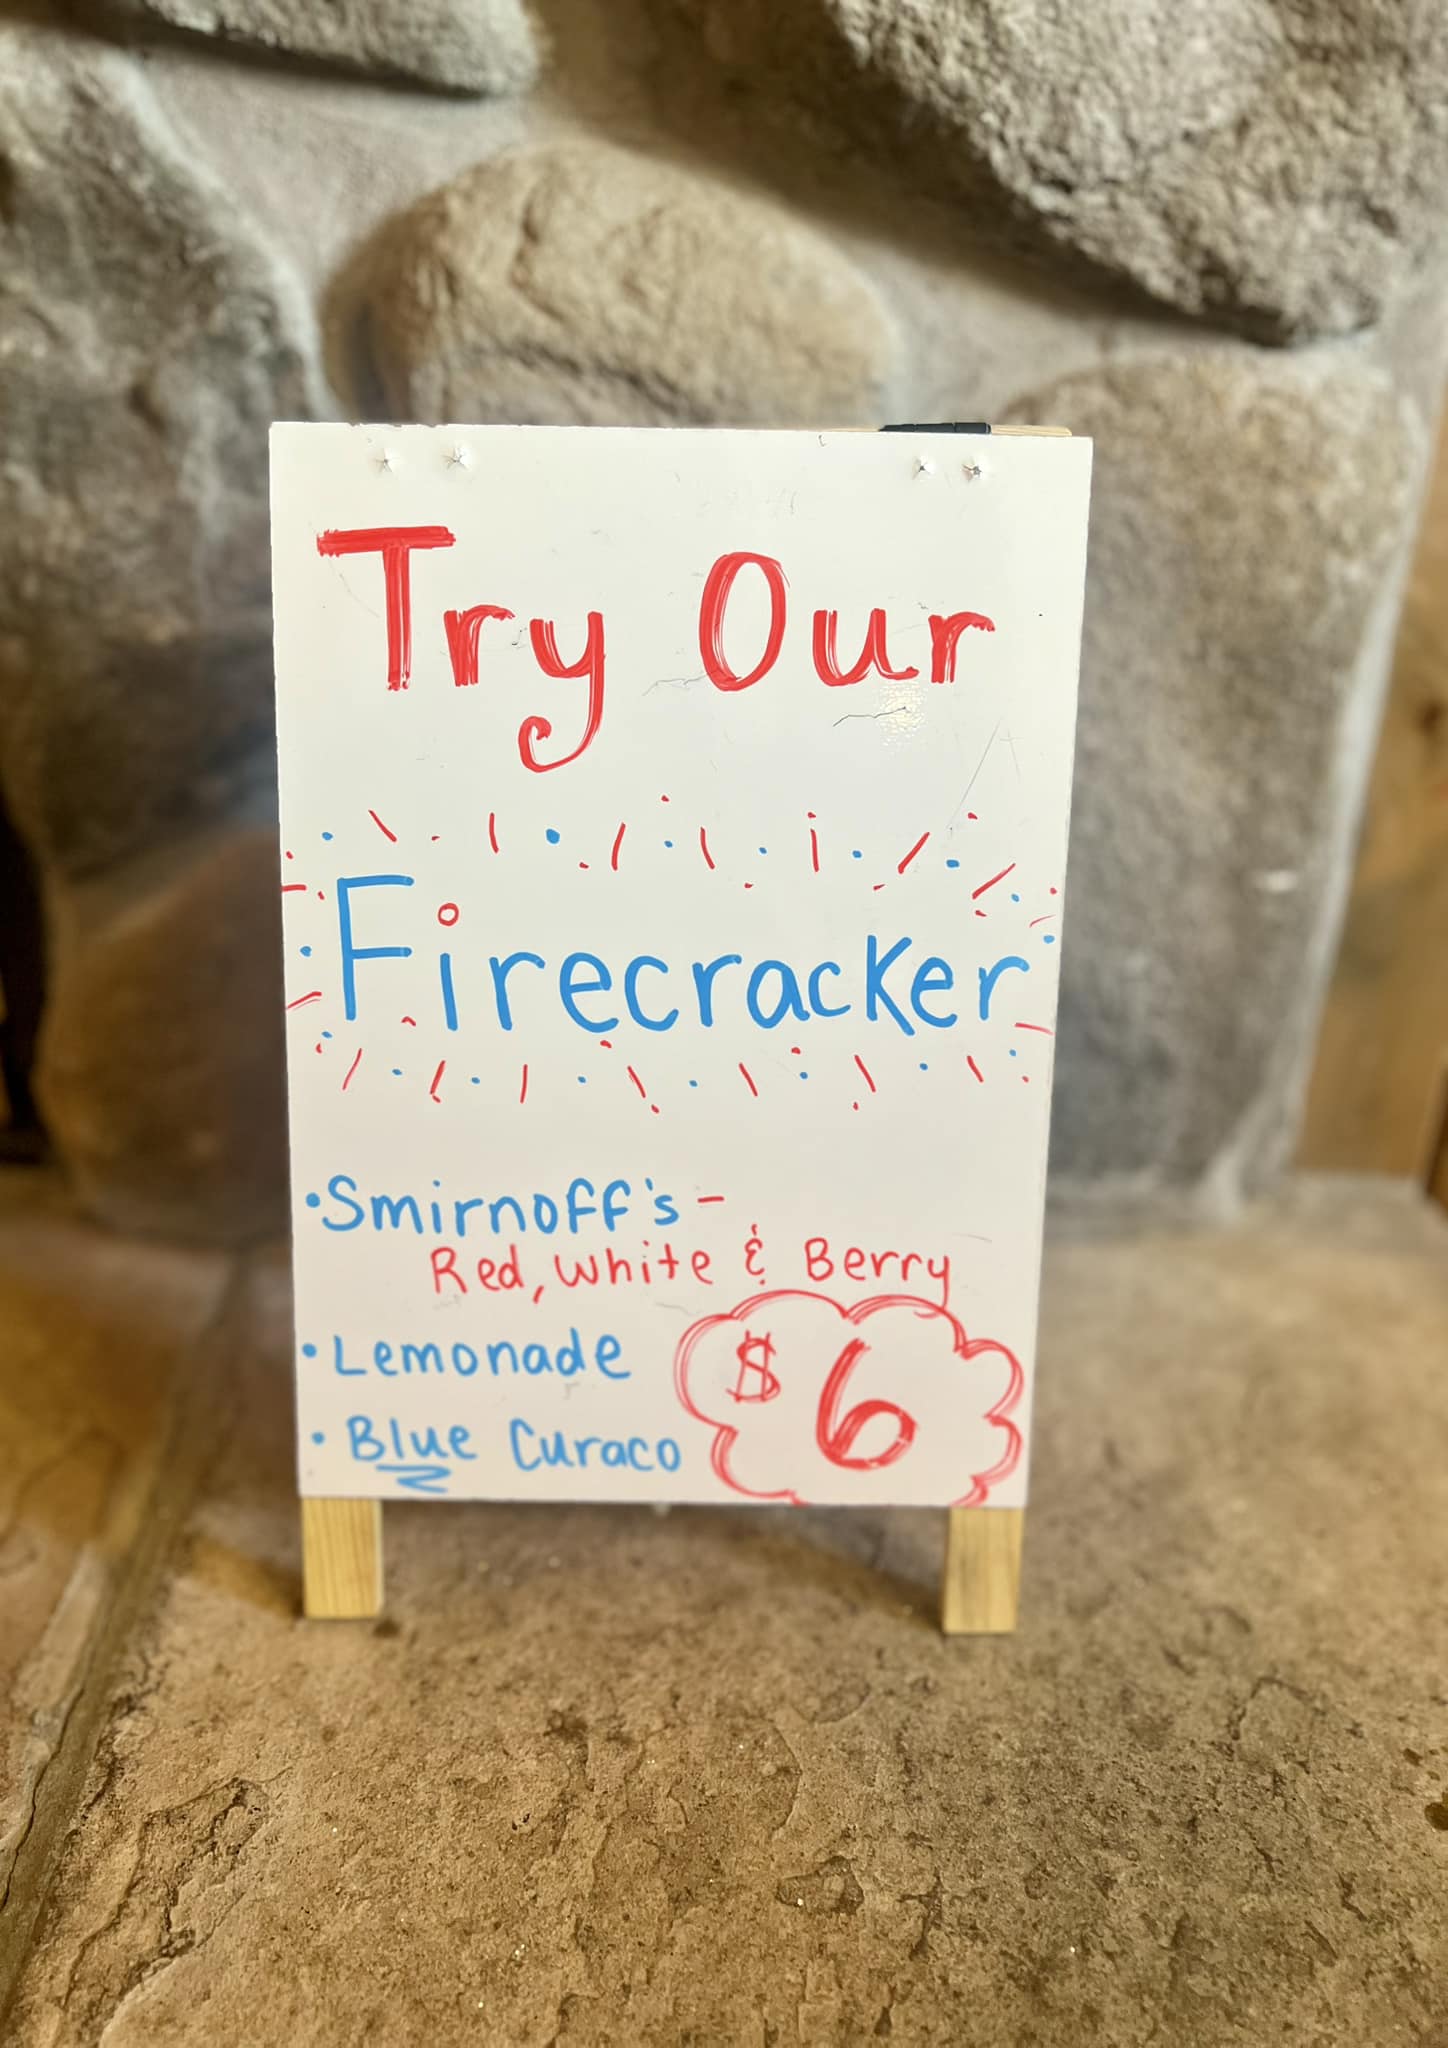 Try Our
Firecracker
• Smirnoff's -
Red, White & Berry
• Lemonade
• Blue Curaco
$6